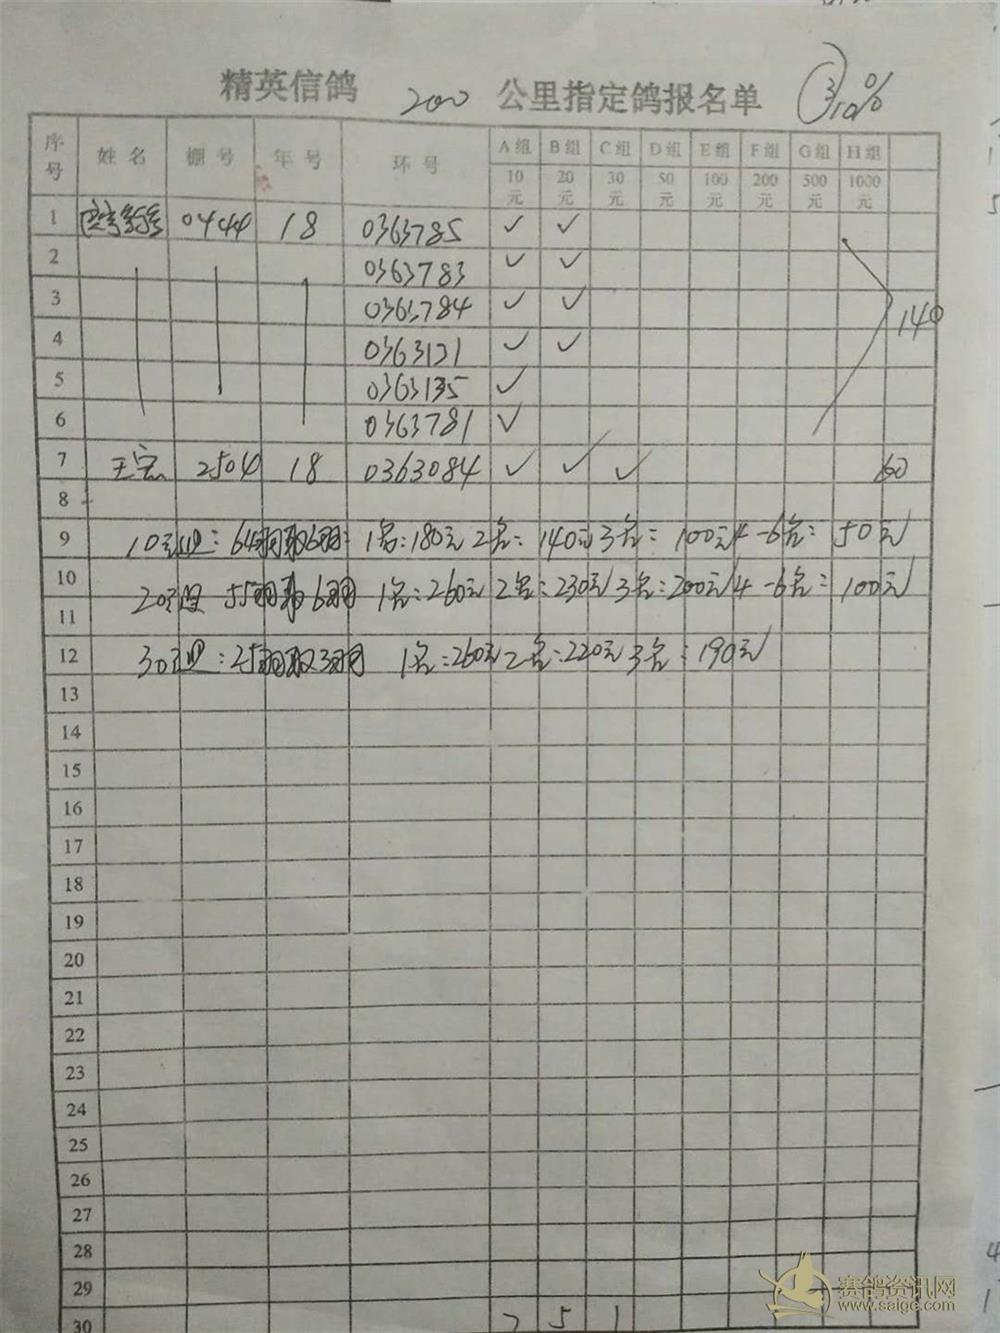 精英信鸽 200 公里指定鸽报名单 ③ 10%
序号 姓名 棚号 年号 环号 A组 B组 C组 D组 E组 F组 G组 H组
10元 20元 30元 50元 100元 200元 500元 1000元
1 0444 18 0363785 ✓ ✓
2 0363783 ✓ ✓
3 0363784 ✓ ✓
140
4 0363121 ✓ ✓
5 0363135 ✓
6 0363781 ✓
7 王宏 2504 18 0363084 ✓ ✓ ✓ 60
8
9 10元组：64羽取6羽：1名：180元 2名：140元 3名：100元 4-6名：50元
10 20元组 55羽取6羽 1名：260元 2名：230元 3名：200元 4-6名：100元
11
12 30元组：25羽取3羽 1名：260元 2名：220元 3名：190元
13
14
15
16
17
18
19
20
21
22
23
24
25
26
27
28
29
30 7 5 1
赛鸽资讯网
www.saige.com